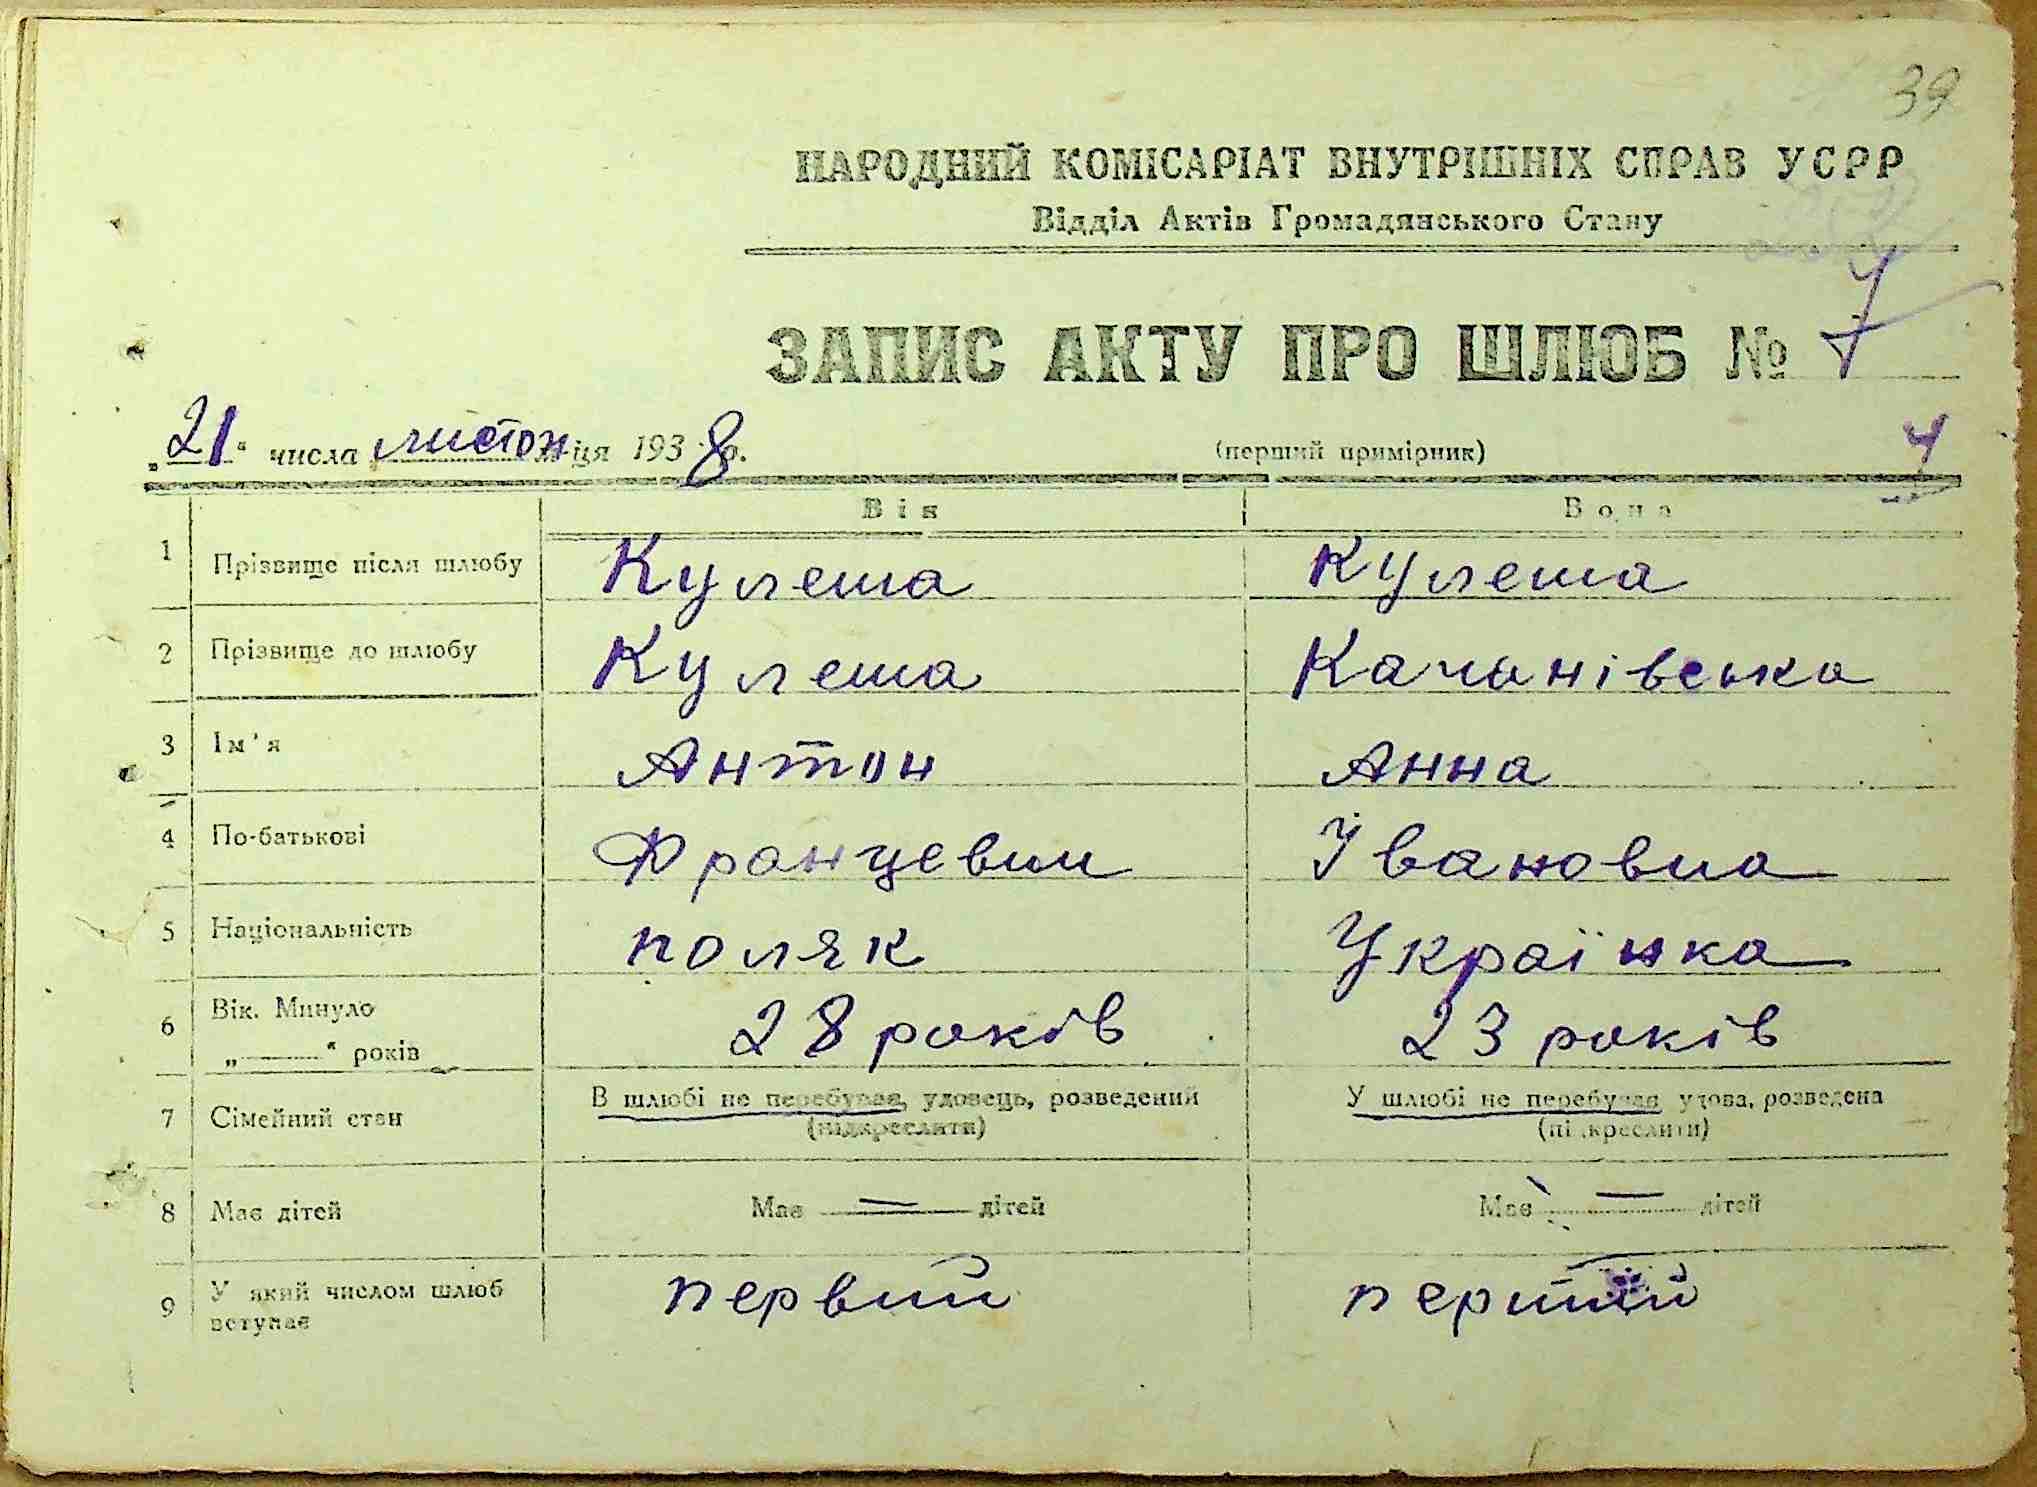 39
НАРОДНИЙ КОМІСАРІАТ ВНУТРІШНІХ СПРАВ УСРР
Відділ Актів Громадянського Стану
ЗАПИС АКТУ ПРО ШЛЮБ № 7
„21“ числа листоп ця 1938 р. (перший примірник) 4
Він Вона
1 Прізвище після шлюбу Кулеша Кулеша
2 Прізвище до шлюбу Кулеша Качанівська
3 Ім'я Антон Анна
4 По-батькові Францевич Івановна
5 Національність поляк Українка
6 Вік. Минуло 28 років 23 років
„ “ років
7 Сімейний стан В шлюбі не перебував, удовець, розведений У шлюбі не перебувая, удова, розведена
(підкреслити) (підкреслити)
8 Має дітей Має — дітей Має — дітей
9 У який числом шлюб вступає первий перший